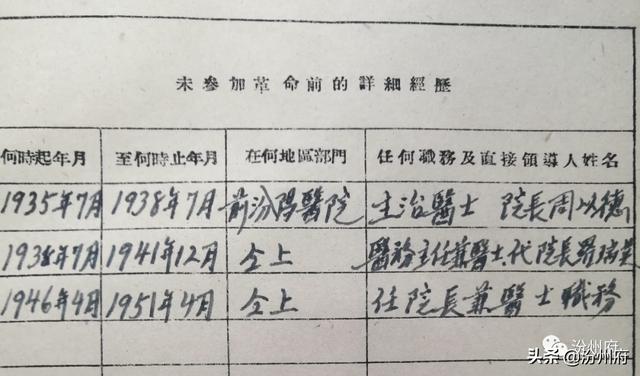 未參加革命前的詳細經歷
何時起年月 至何時止年月 在何地區部門 任何職務及直接領導人姓名
1935年7月 1938年7月 前汾陽醫院 主治醫士 院長周以德
1938年7月 1941年12月 仝上 醫務主任兼醫士代院長
1946年4月 1951年4月 仝上 任院長兼醫士職務
汾州府
头条@汾州府